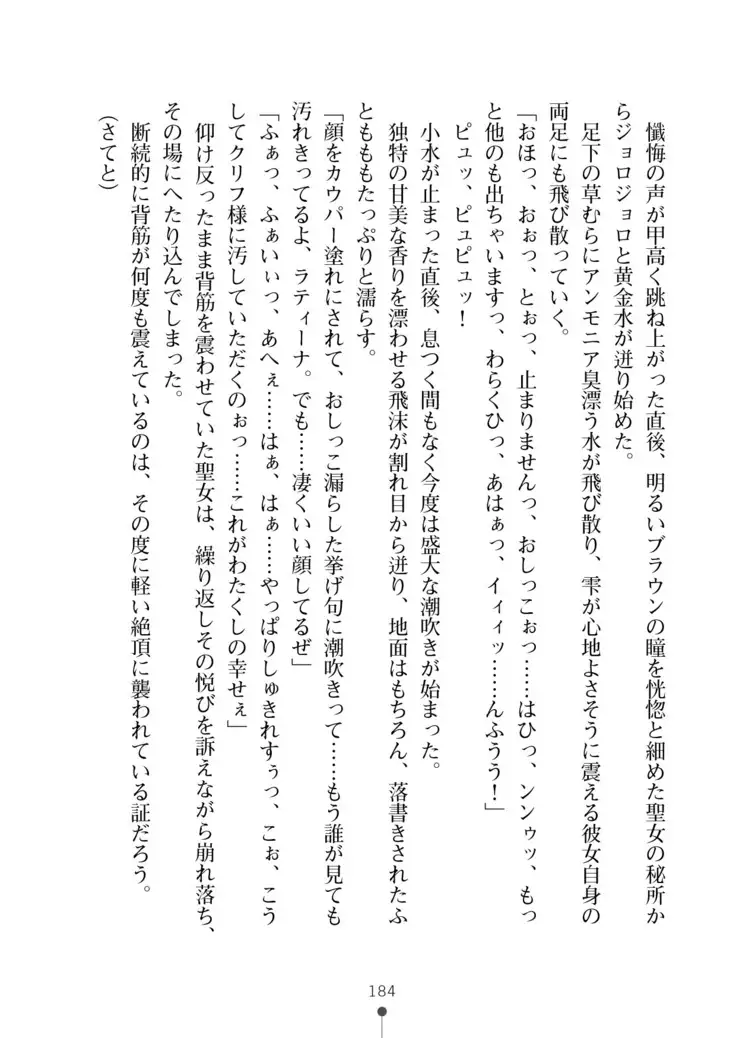 懺悔の声が甲高く跳ね上がった直後、明るいブラウンの瞳を恍惚と細めた聖女の秘所か
らジョロジョロと黄金水が迸り始めた。
　足下の草むらにアンモニア臭漂う水が飛び散り、雫が心地よさそうに震える彼女自身の
両足にも飛び散っていく。
「おほっ、おぉっ、とぉっ、止まりませんっ、おしっこぉっ……はひっ、ンンゥッ、もっ
と他のも出ちゃいますっ、わらくひっ、あはぁっ、イィィッ……んふうう！」
　ピュッ、ピュピュッ！
　小水が止まった直後、息つく間もなく今度は盛大な潮吹きが始まった。
　独特の甘美な香りを漂わせる飛沫が割れ目から迸り、地面はもちろん、落書きされたふ
とももたっぷりと濡らす。
「顔をカウパー塗れにされて、おしっこ漏らした挙げ句に潮吹きって……もう誰が見ても
汚れきってるよ、ラティーナ。でも……凄くいい顔してるぜ」
「ふぁっ、ふぁぃぃっ、あへぇ……はぁ、はぁ……やっぱりしゅきれすぅっ、こぉ、こう
してクリフ様に汚していただくのぉっ……これがわたくしの幸せぇ」
　仰け反ったまま背筋を震わせていた聖女は、繰り返しその悦びを訴えながら崩れ落ち、
その場にへたり込んでしまった。
　断続的に背筋が何度も震えているのは、その度に軽い絶頂に襲われている証だろう。
（さてと）
184